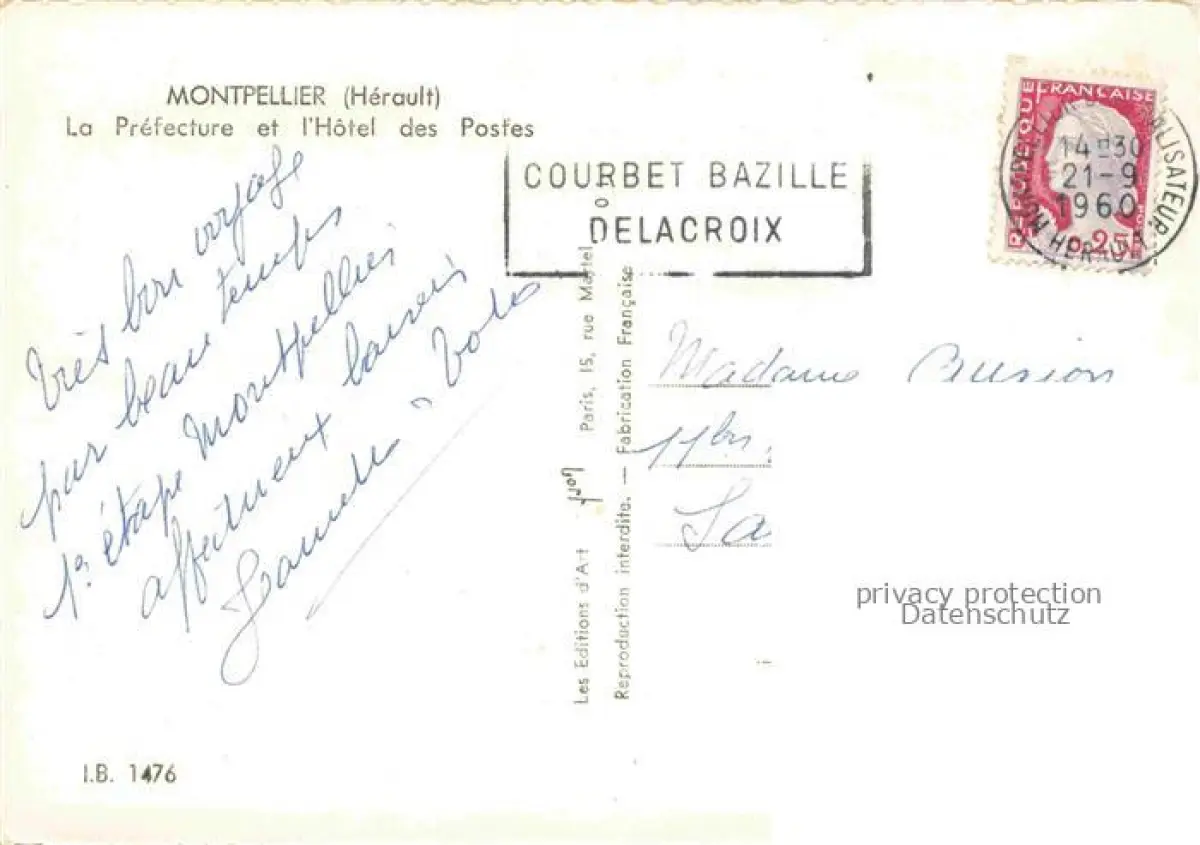 MONTPELLIER (Hérault)
La Préfecture et l'Hôtel des Postes
COURBET BAZILLE
DELACROIX
REPUBLIQUE FRANÇAISE
14 H 30
21-9
1960
HERAULT
0,25
Très bon voyage
par beau temps
1e étape Montpellier
affectueux baisers
Madame
Les Editions d'Art Yvon Paris, 15, rue Martel
Reproduction interdite. — Fabrication Française
privacy protection
Datenschutz
I.B. 1476